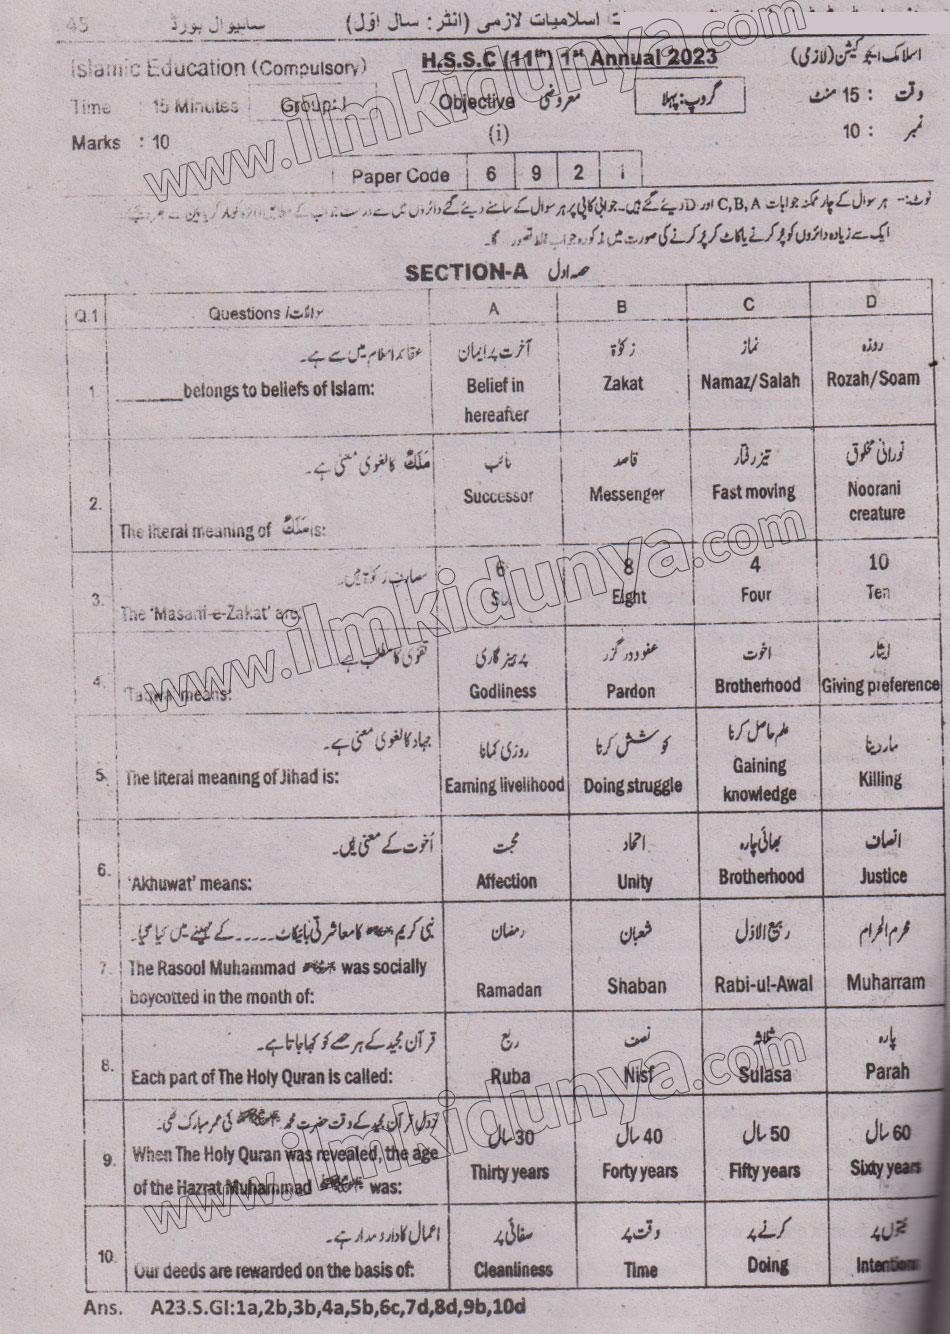 45 ساہیوال بورڈ اسلامیات لازمی (انٹر: سال اوّل)
Islamic Education (Compulsory) H.S.S.C (11th) 1st Annual 2023 اسلامک ایجوکیشن (لازمی)
Time : 15 Minutes Group: I Objective معروضی گروپ: پہلا وقت : 15 منٹ
Marks : 10 (i) نمبر : 10
Paper Code 6 9 2 1
نوٹ:- ہر سوال کے چار ممکنہ جوابات C, B, A اور D دیئے گئے ہیں۔ جوابی کاپی پر ہر سوال کے سامنے دیئے گئے دائروں میں سے درست جواب کے
ایک سے زیادہ دائروں کو پُر کرنے یا کاٹ کر پُر کرنے کی صورت میں مذکورہ جواب غلط تصور
SECTION-A حصہ اول
Q.1 Questions / سوالات A B C D
عقائد اسلام میں سے ہے۔ آخرت پر ایمان زکوٰۃ نماز روزہ
1. ______belongs to beliefs of Islam: Belief in hereafter Zakat Namaz/Salah Rozah/Soam
مَلَکٌ کا لغوی معنی ہے۔ نائب قاصد تیز رفتار نورانی مخلوق
2. The literal meaning of مَلَکٌ is: Successor Messenger Fast moving Noorani creature
مصارف زکوٰۃ ہیں۔ 6 8 4 10
3. The 'Masarif-e-Zakat' are: Six Eight Four Ten
تقویٰ کا مطلب ہے پرہیز گاری عفو درگزر اخوت ایثار
4. 'Taqwa' means: Godliness Pardon Brotherhood Giving preference
جہاد کا لغوی معنی ہے۔ روزی کمانا کوشش کرنا علم حاصل کرنا مار دینا
5. The literal meaning of Jihad is: Earning livelihood Doing struggle Gaining knowledge Killing
اُخوت کے معنی ہیں۔ محبت اتحاد بھائی چارہ انصاف
6. 'Akhuwat' means: Affection Unity Brotherhood Justice
نبی کریم ﷺ کا معاشرتی بائیکاٹ ----- کے مہینے میں کیا گیا۔ رمضان شعبان ربیع الاوّل محرم الحرام
7. The Rasool Muhammad ﷺ was socially
boycotted in the month of: Ramadan Shaban Rabi-ul-Awal Muharram
قرآن مجید کے ہر حصے کو کہا جاتا ہے۔ ربع نصف ثلاثہ پارہ
8. Each part of The Holy Quran is called: Ruba Nisf Sulasa Parah
نزول قرآن مجید کے وقت حضرت محمد ﷺ کی عمر مبارک تھی۔ 30 سال 40 سال 50 سال 60 سال
9. When The Holy Quran was revealed, the age
of the Hazrat Muhammad ﷺ was: Thirty years Forty years Fifty years Sixty years
اعمال کا دارومدار ہے۔ صفائی پر وقت پر کرنے پر نیتوں پر
10. Our deeds are rewarded on the basis of: Cleanliness Time Doing Intentions
Ans. A23.S.GI:1a,2b,3b,4a,5b,6c,7d,8d,9b,10d
www.ilmkidunya.com
www.ilmkidunya.com
www.ilmkidunya.com